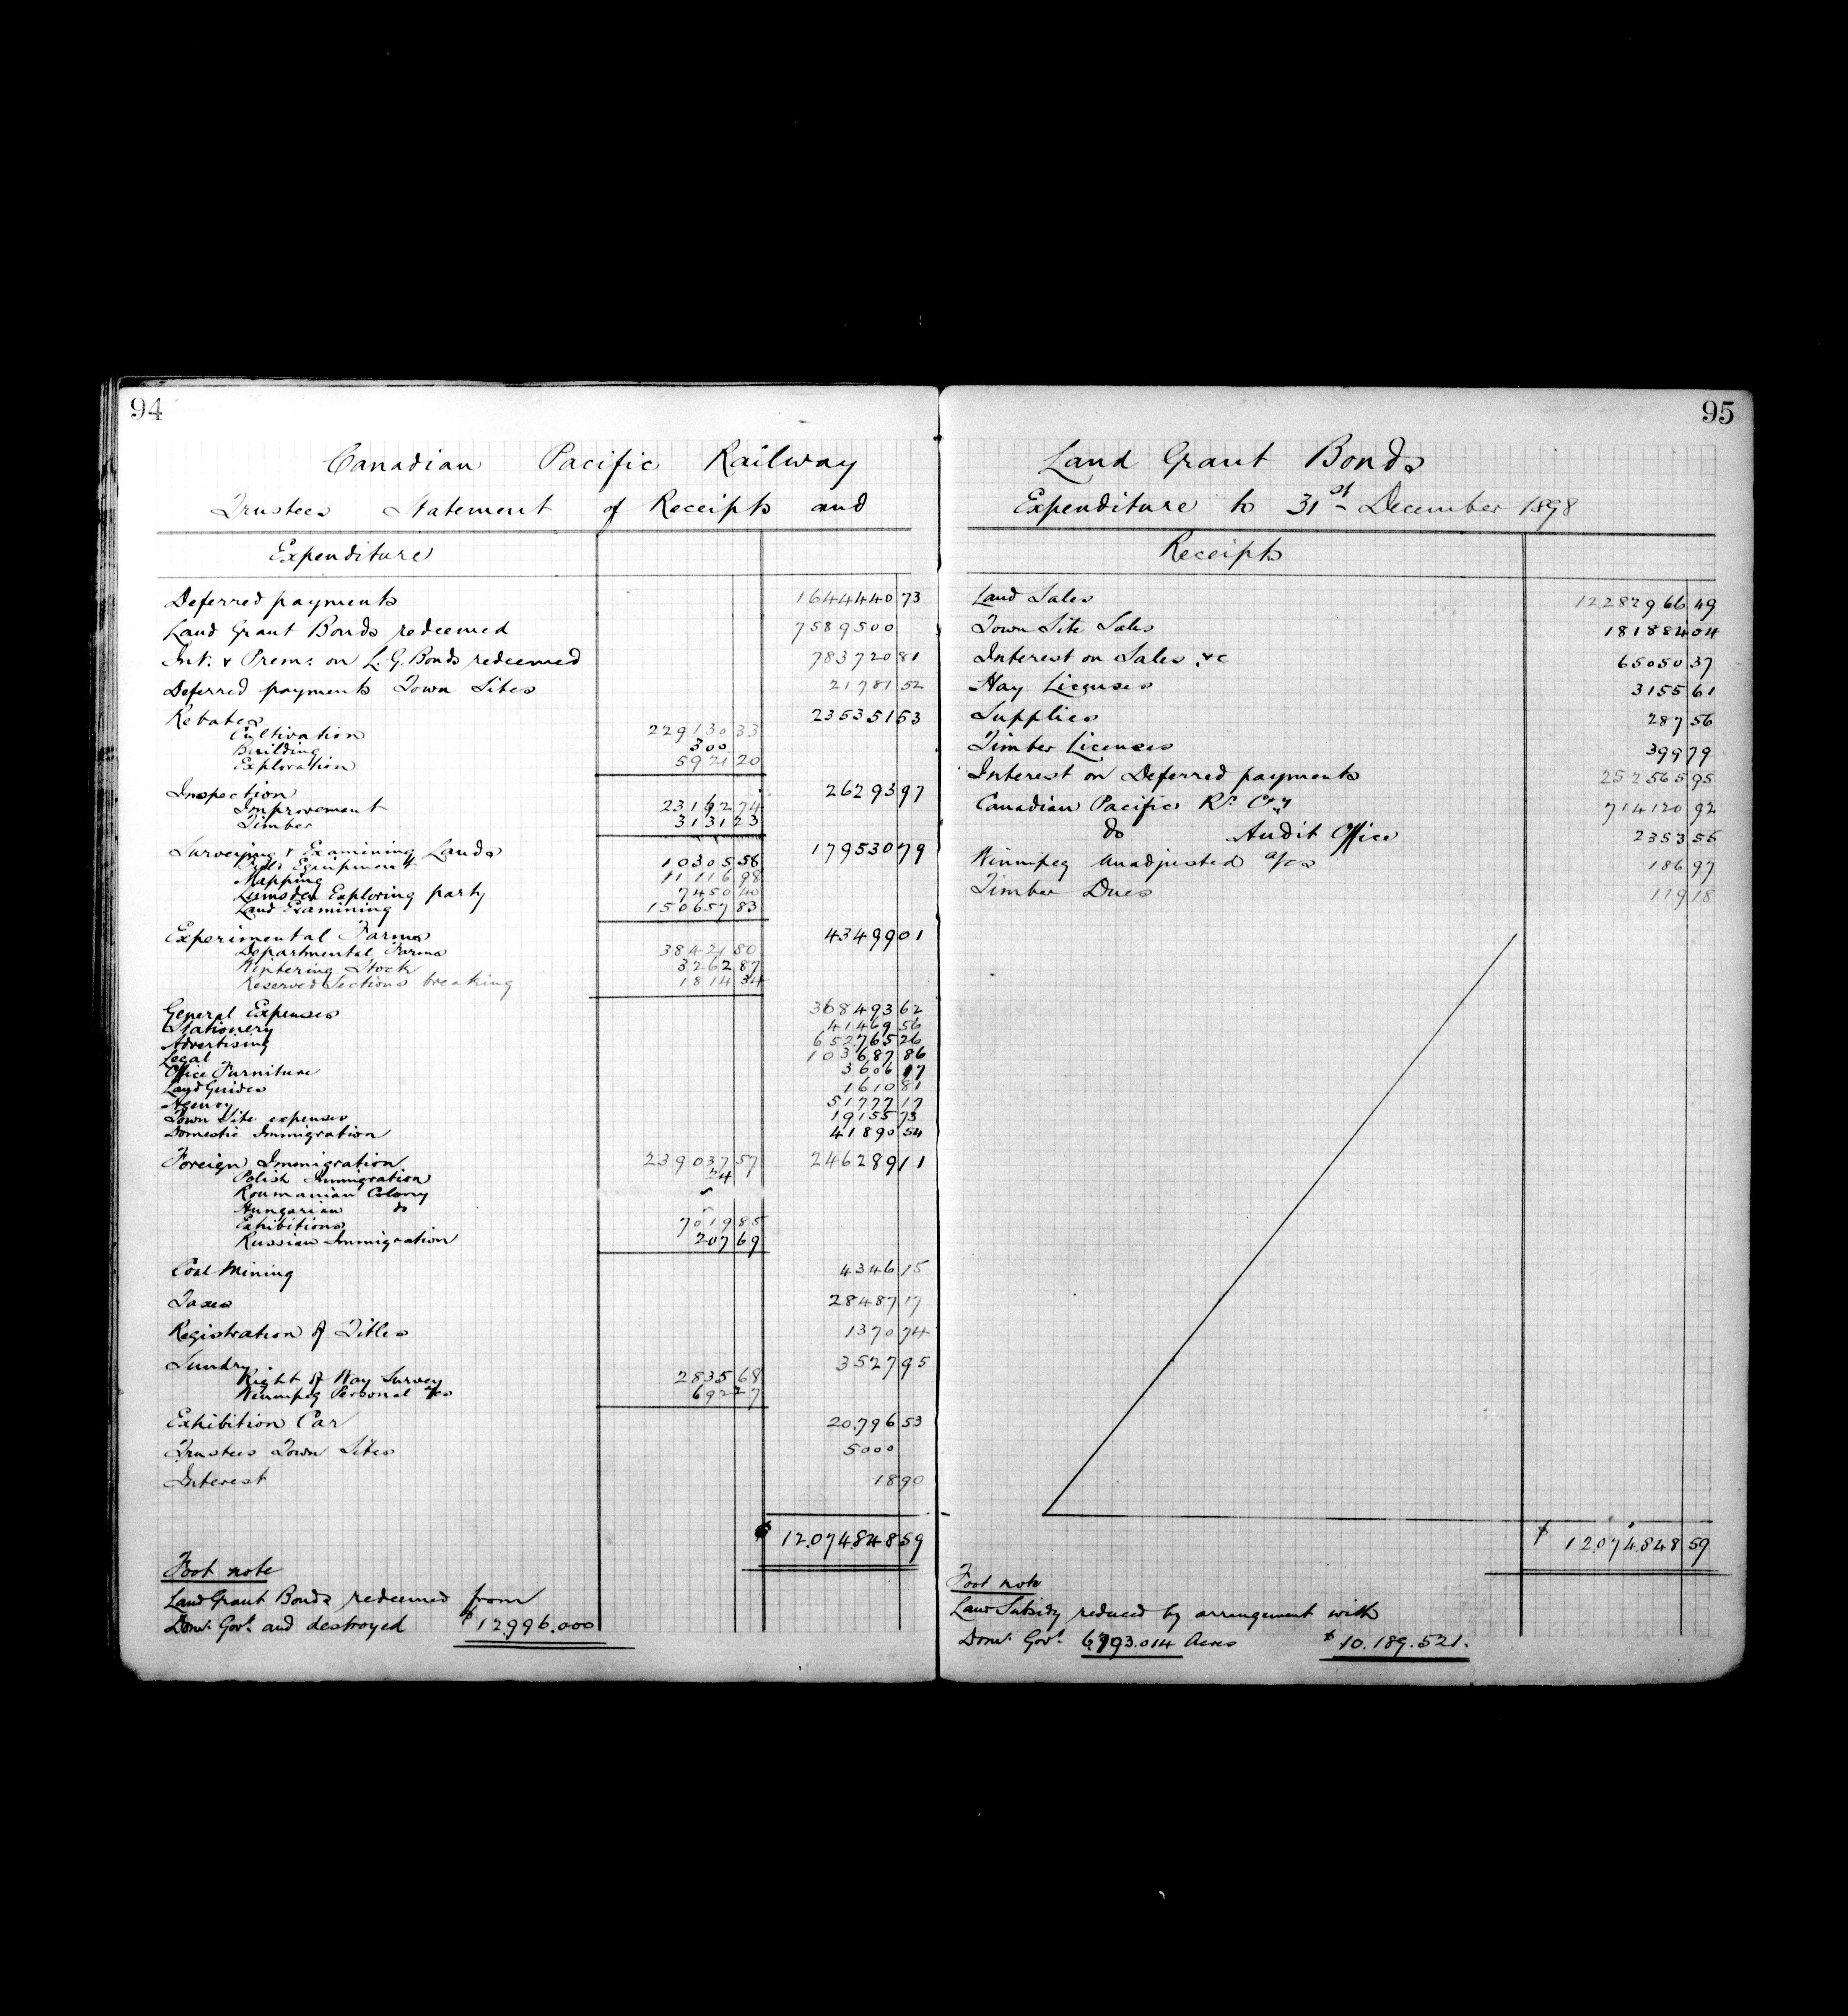 94
Canadian Pacific Railway
Trustees Statement of Receipts and
Expenditure
Deferred payments 1644440 73
Land Grant Bonds redeemed 7589500
Int. & Prem: on L.G. Bonds redeemed 783720 81
Deferred payments Town Sites 21781 52
Rebates 235351 53
Cultivation 229130 33
Building 300
Exploration 5921 20
Inspection 26293 97
Improvement 23162 74
Timber 3131 23
Surveying & Examining Lands 179530 79
Field Equipment 10305 58
Mapping 11116 98
Lumsden Exploring party 7450 40
Land Examining 150657 83
Experimental Farms 43499 01
Departmental Farms 38421 80
Wintering Stock 3262 87
Reserved Sections breaking 1814 34
General Expenses 368493 62
Stationery 41469 56
Advertising 652765 26
Legal 103687 86
Office Furniture 3606 17
Land Guides 1610 81
Agency 51777 17
Town Site expenses 19155 73
Domestic Immigration 41890 54
Foreign Immigration 239037 57 246289 11
Polish Immigration 24
Roumanian Colony
Hungarian do
Exhibitions 7019 85
Russian Immigration 207 69
Coal Mining 4346 15
Taxes 28487 17
Registration of Titles 1370 74
Sundry 3527 95
Right of Way Survey 2835 68
Winnipeg Personal a/cs 692 27
Exhibition Car 20.796 53
Trustees Town Sites 5000
Interest 18 90
$ 12.074.848 59
Foot note
Land Grant Bonds redeemed from
Domn. Govt. and destroyed $12.996.000
95
Land Grant Bonds
Expenditure to 31st December 1898
Receipts
Land Sales
Town Site Sales 181884 04
Interest on Sales &c 65050 37
Hay Licenses 3155 61
Supplies 287 56
Timber Licenses 399 79
Interest on Deferred payments 252565 95
Canadian Pacific Ry. Coy 714120 92
do Audit Office 2353 56
Winnipeg Unadjusted a/cs 186 97
Timber Dues 119 18
$ 12.074.848 59
Foot note
Land Subsidy reduced by arrangement with
Domn. Govt. 6793.014 Acres $10.189.521.